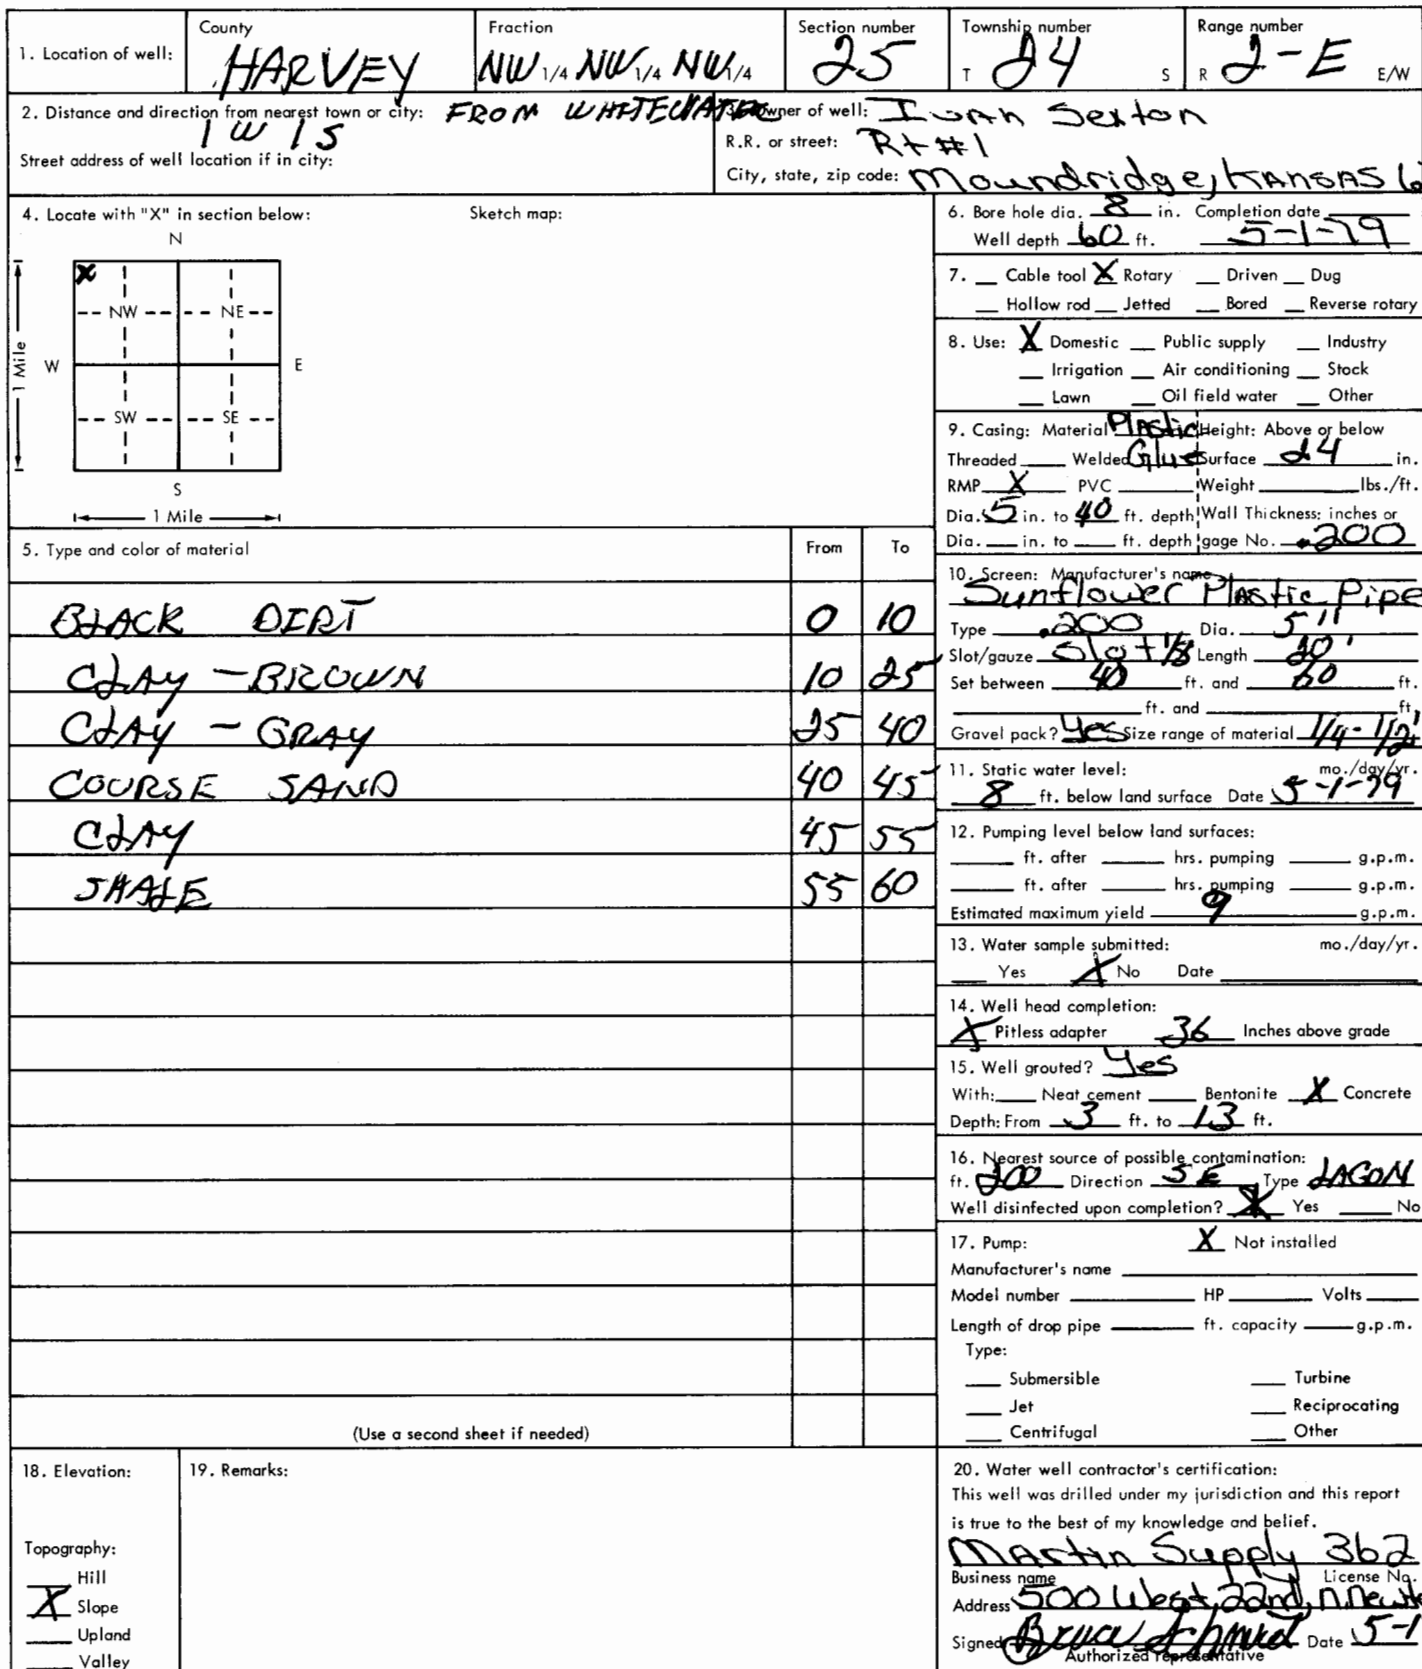 1. Location of well: County HARVEY Fraction NW 1/4 NW 1/4 NW 1/4 Section number 25 Township number T 24 S Range number R 2-E E/W
2. Distance and direction from nearest town or city: FROM WHITEWATER
1 W 1 S
Street address of well location if in city:
3. Owner of well: Ivan Sexton
R.R. or street: Rt #1
City, state, zip code: Moundridge, KANSAS 6
4. Locate with "X" in section below: Sketch map:
N
X
NW NE
W E
1 Mile
SW SE
S
1 Mile
5. Type and color of material From To
BLACK DIRT 0 10
CLAY - BROWN 10 25
CLAY - GRAY 25 40
COURSE SAND 40 45
CLAY 45 55
SHALE 55 60
(Use a second sheet if needed)
6. Bore hole dia. 8 in. Completion date
Well depth 60 ft. 5-1-79
7. __ Cable tool X Rotary __ Driven __ Dug
__ Hollow rod __ Jetted __ Bored __ Reverse rotary
8. Use: X Domestic __ Public supply __ Industry
__ Irrigation __ Air conditioning __ Stock
__ Lawn __ Oil field water __ Other
9. Casing: Material Plastic Height: Above or below
Threaded ___ Welded Glue Surface 24 in.
RMP X PVC ___ Weight ___ lbs./ft.
Dia. 5 in. to 40 ft. depth Wall Thickness: inches or
Dia. ___ in. to ___ ft. depth gage No. .200
10. Screen: Manufacturer's name
Sunflower Plastic Pipe
Type .200 Dia. 5"
Slot/gauze Slot 1/8 Length 20'
Set between 40 ft. and 60 ft.
___ ft. and ___ ft.
Gravel pack? Yes Size range of material 1/4-1/2"
11. Static water level: mo./day/yr.
8 ft. below land surface Date 5-1-79
12. Pumping level below land surfaces:
___ ft. after ___ hrs. pumping ___ g.p.m.
___ ft. after ___ hrs. pumping ___ g.p.m.
Estimated maximum yield 9 g.p.m.
13. Water sample submitted: mo./day/yr.
__ Yes X No Date ___
14. Well head completion:
X Pitless adapter 36 Inches above grade
15. Well grouted? Yes
With: ___ Neat cement ___ Bentonite X Concrete
Depth: From 3 ft. to 13 ft.
16. Nearest source of possible contamination:
ft. 200 Direction SE Type LAGON
Well disinfected upon completion? X Yes ___ No
17. Pump: X Not installed
Manufacturer's name ___
Model number ___ HP ___ Volts ___
Length of drop pipe ___ ft. capacity ___ g.p.m.
Type:
___ Submersible ___ Turbine
___ Jet ___ Reciprocating
___ Centrifugal ___ Other
18. Elevation:
Topography:
___ Hill
X Slope
___ Upland
___ Valley
19. Remarks:
20. Water well contractor's certification:
This well was drilled under my jurisdiction and this report
is true to the best of my knowledge and belief.
Martin Supply 362
Business name License No.
Address 500 West 22nd, N. Newto
Signed Bruce Schmid Date 5-1
Authorized representative